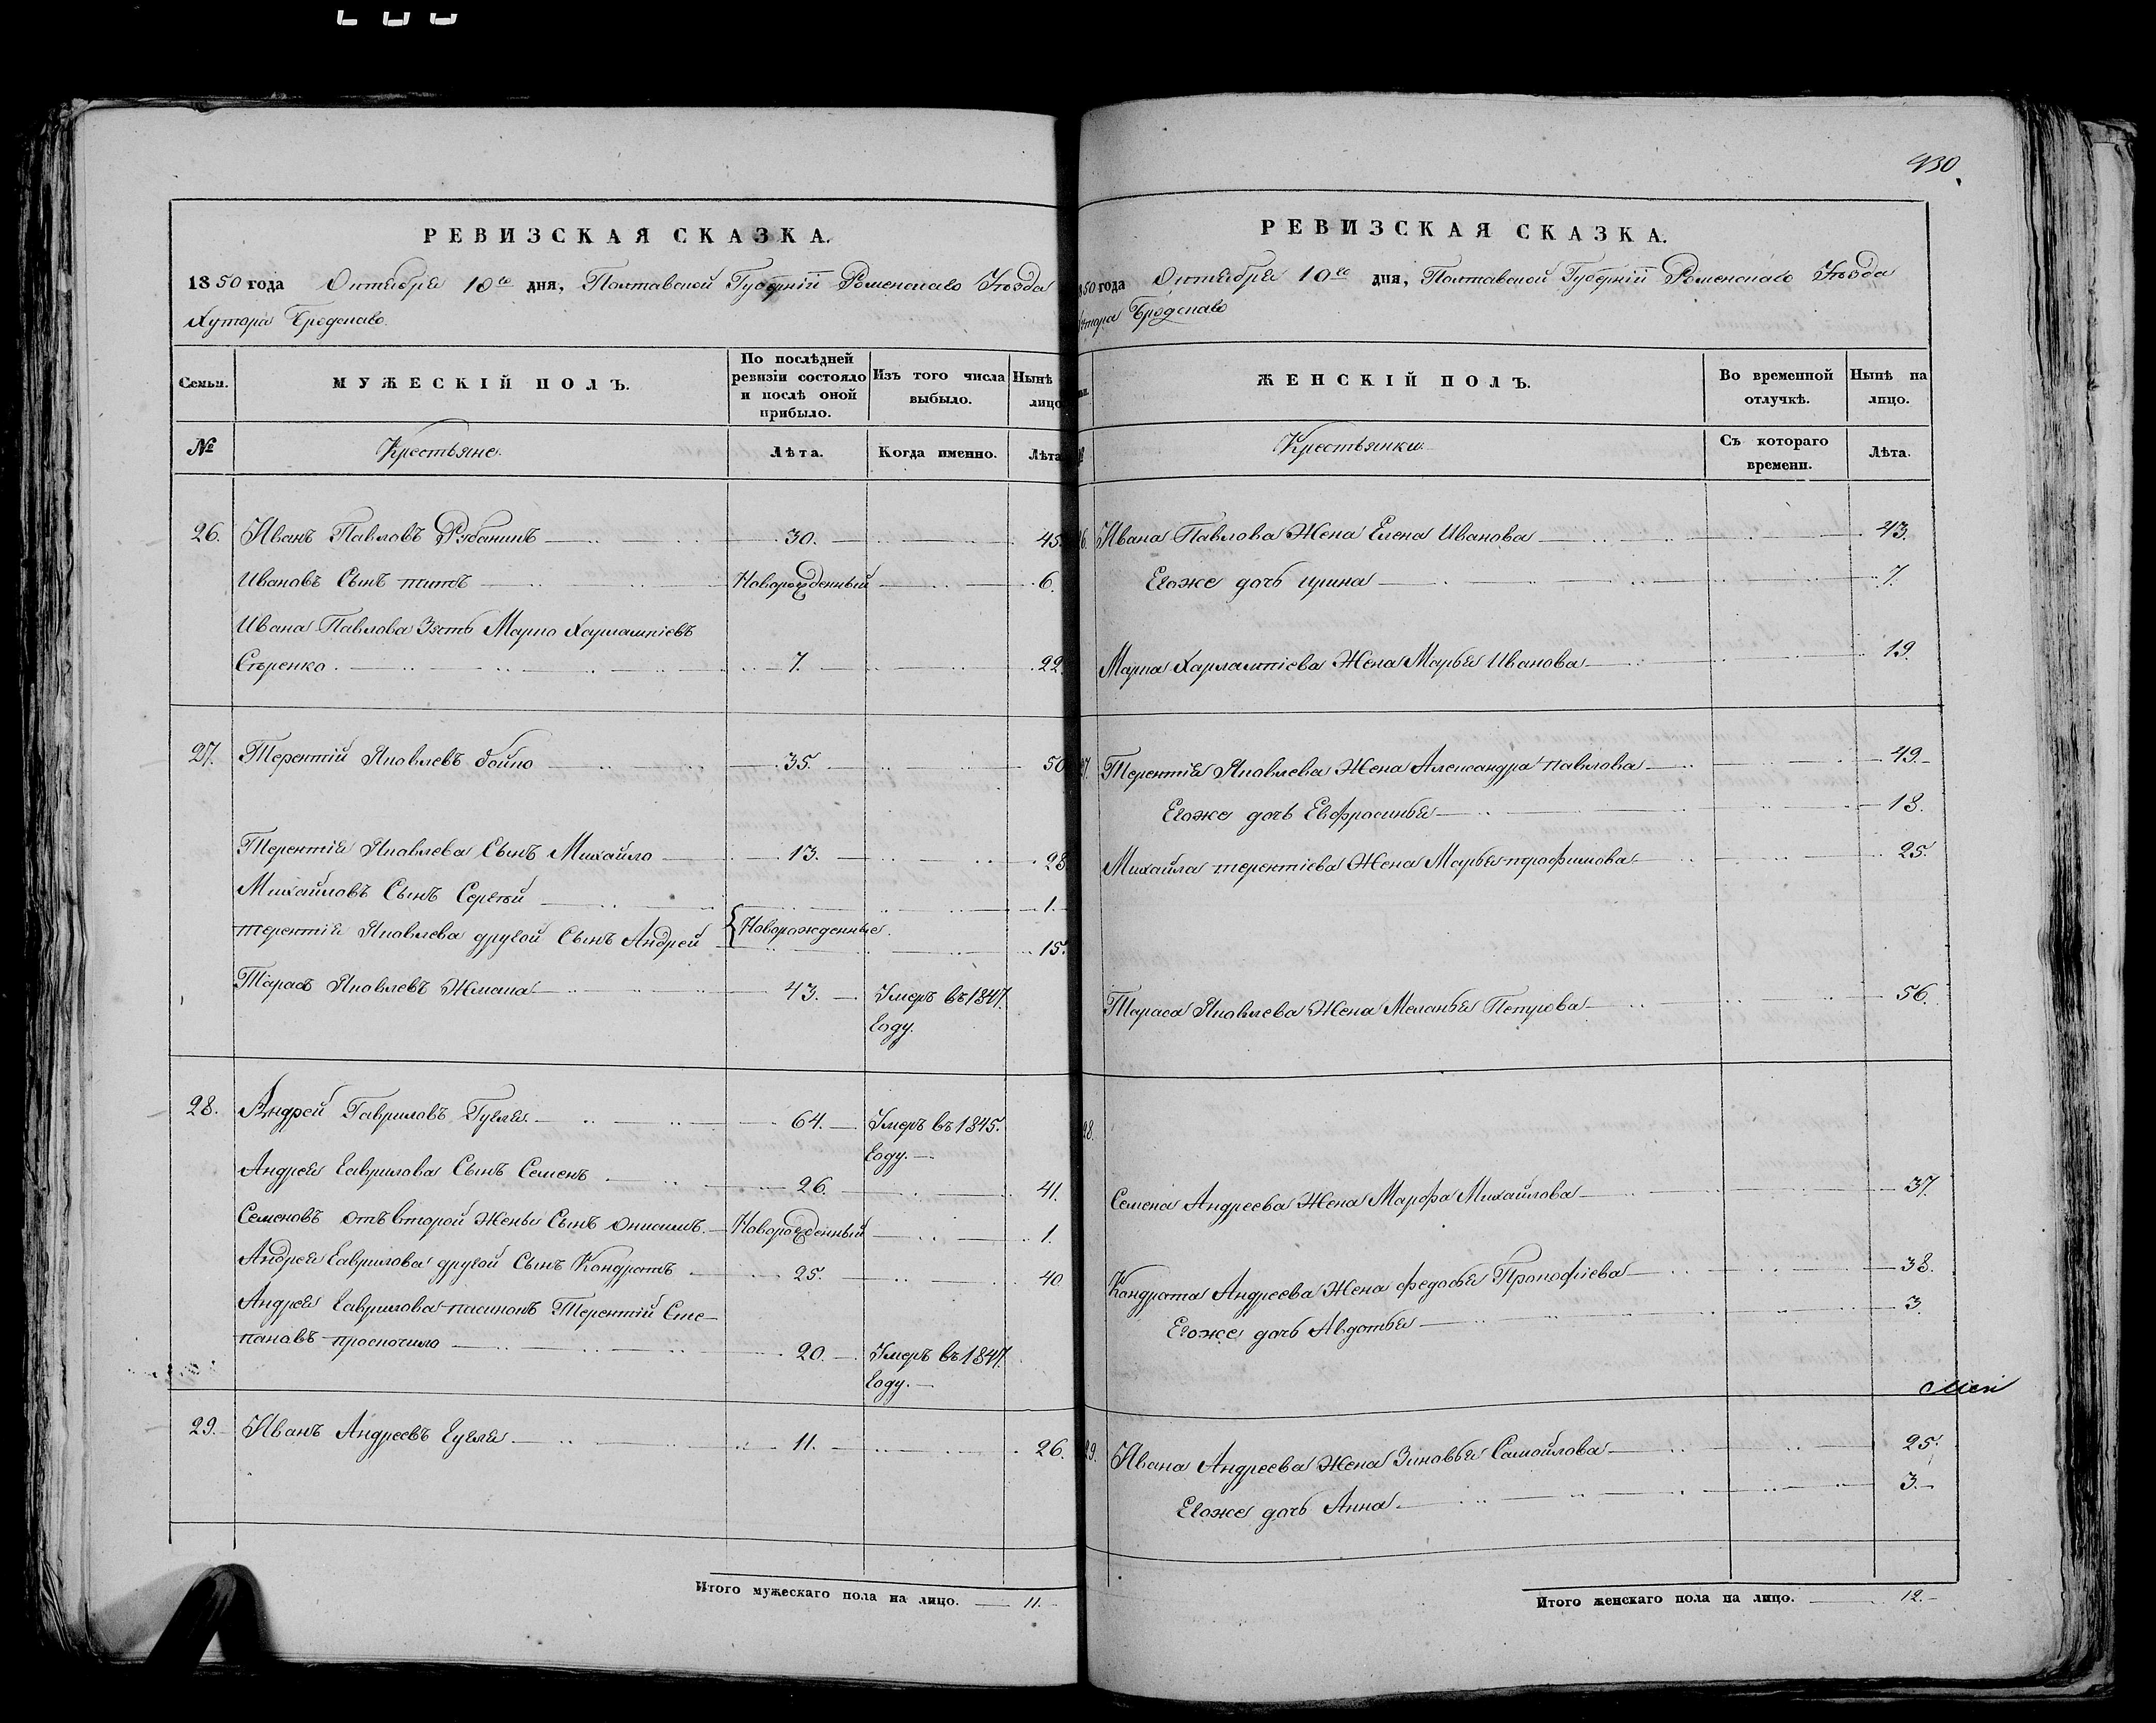 430
РЕВИЗСКАЯ СКАЗКА.
1850 года Октября 10го дня, Полтавской Губерніи Роменскаго Уѣзда
Хутора Бродскаго.
Семьи.
МУЖЕСКІЙ ПОЛЪ.
По послѣдней ревизіи состояло и послѣ оной прибыло.
Изъ того числа выбыло.
Нынѣ лицо
№
Крестьяне.
Лѣта.
Когда именно.
Лѣта
26. Иванъ Павловъ Рубаникъ 30. 45.
Ивановъ Сынъ титъ Новорожденный 6.
Ивана Павлова Зять Марко Харлампіевъ
7. 22.
27. Терентій Яковлевъ бойко 35. 50
Терентія Яковлева Сынъ Михайло 13. 28
Михайловъ Сынъ Сергѣй 1.
терентія Яковлева другой Сынъ Андрей Новорожденные. 15.
Тарасъ Яковлевъ Жмака 43. Умеръ въ 1847.
году.
28. Андрей Гавриловъ Гугля 64. Умеръ въ 1845.
году.
Андрея гаврилова Сынъ Семенъ 26. 41.
Семеновъ отъ второй Жены Сынъ онисимъ. Новорожденный 1.
Андрея гаврилова другой Сынъ Кондратъ 25. 40
Андрея гаврилова пасинокъ Терентій Сте-
пановъ проскочило 20. Умеръ въ 1847.
году.
29. Иванъ Андреевъ гугля 11. 26.
Итого мужескаго пола на лицо. 11.
РЕВИЗСКАЯ СКАЗКА.
850 года Октября 10го дня, Полтавской Губерніи Роменскаго Уѣзда
тора Бродскаго
ЖЕНСКІЙ ПОЛЪ.
Во временной отлучкѣ.
Нынѣ на лицо.
Крестьянки
Съ котораго времени.
Лѣта.
6. Ивана Павлова Жена Елена Иванова 43.
Егоже дочь ирина 7.
Марка Харлампіева Жена Марья Иванова 19.
7. Терентія Яковлева Жена Александра павлова 49.
Егоже дочь Евфросинья 18.
Михайла терентіева Жена Марья трофимова 25.
Тараса Яковлева Жена Меланья Петрова 56.
28.
Семена Андреева Жена Марфа Михайлова 37.
Кондрата Андреева Жена федосья Прокофіева 38.
Егоже дочь Авдотья 3.
29. Ивана Андреева Жена Зиновья Самойлова 25.
Егоже дочь Анна 3.
Итого женскаго пола на лицо. 12.